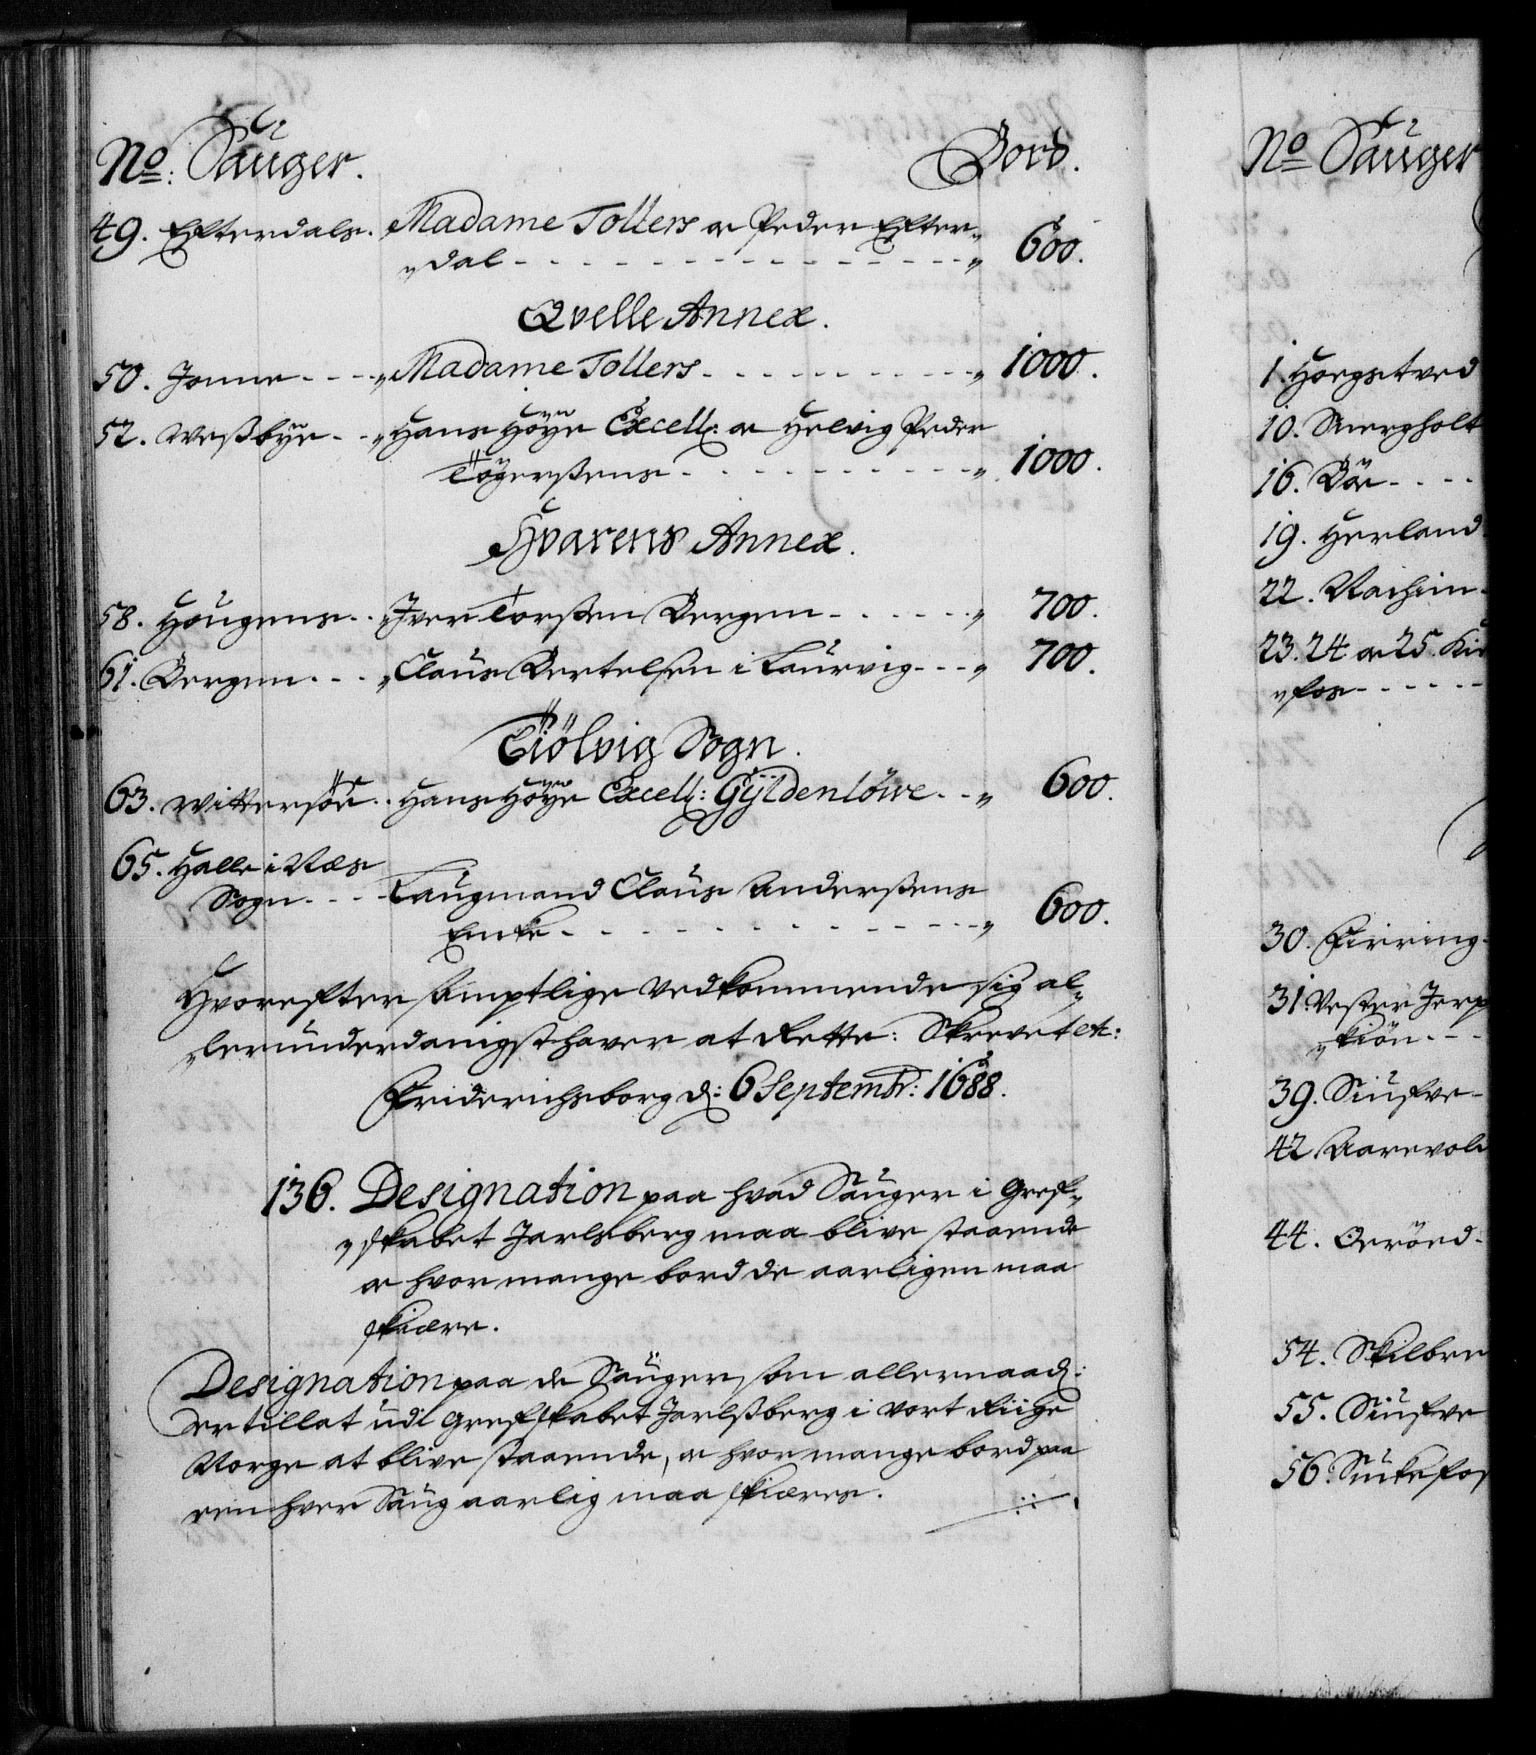 No: Sauger. Bord.
49. Efterdals. Madame Tollers oc Peder Efter„
„dal - - - „ 600.
Qvelle Annex.
50. Jonne - - - „ Madame Tollers - - - „ 1000.
52. Weßbye - - „ Hans Höye Excell: oc Helvig Peder
Tögerßens - - - „ 1000.
Hvarens Annex.
58. Hougens - - „ Iver Torßen Bergen - - - „ 700.
61. Bergen - - - „ Claus Bertelsen i Laurvig - - - „ 700.
Tiölvig Sogn.
63. Wittersöe - - Hans Höye Excell: Gyldenlöwe - - „ 600.
65. Halle i Næs
Sogn - - - Laugmand Claus Anderßens
Encke - - - „ 600.
Hvorefter samptlige Vedkommende sig al„
„lerunderdanigst haver at Rette: Skrevet etc:
Friderichsborg d: 6 Septembr: 1688.
136. Designation paa hvad Sauger i Gref„
„skabet Jarlsberg maa blive staaende
oc hvor mange bord de aarligen maa
skiære.
Designation paa de Sauger, som allernaad:
er tillat udi Grefskabet Jarlßberg i Vort Riige
Norge at blive staaende, oc hvor mange bord paa
een hver Saug aarlig maa skiæres.
No Sauger
1. Hoegstved
10. Mergholt
16. Böe - - -
19. Herland
22. Vachim
23. 24 oc 25. Kir
„fos - - -
30. Firring
31. Vester Jerp
„kiön - -
39. Siufve
42. Aarevold
44. Oeröed
54. Skilbre
55. Siufve
56. Sückefos